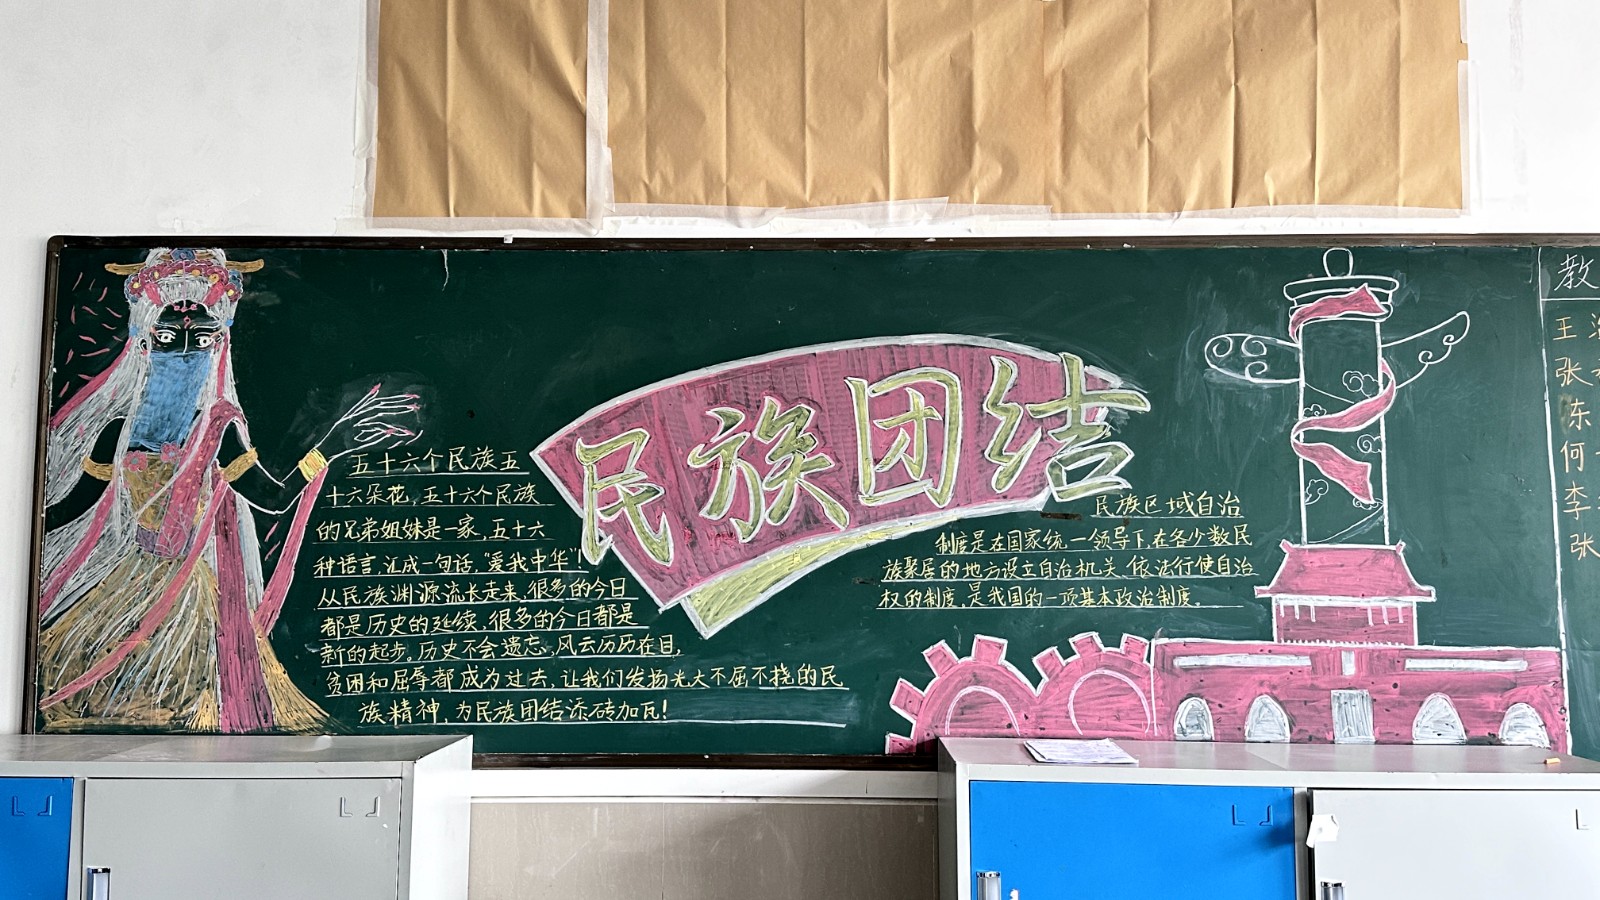 民族团结
五十六个民族五
十六朵花,五十六个民族
的兄弟姐妹是一家,五十六
种语言,汇成一句话,“爱我中华”!
从民族渊源流长走来,很多的今日
都是历史的延续,很多的今日都是
新的起步。历史不会遗忘。风云历历在目,
贫困和屈辱都成为过去,让我们发扬光大不屈不挠的民
族精神,为民族团结添砖加瓦!
民族区域自治
制度是在国家统一领导下,在各少数民
族聚居的地方设立自治机关,依法行使自治
权的制度,是我国的一项基本政治制度。
教
王
张
东
何
李
张